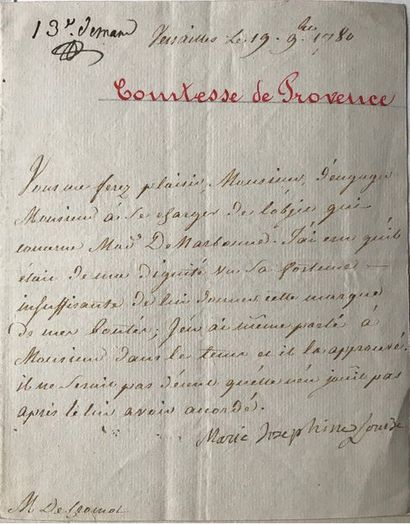 13e demand
Versailles le 19. 9bre 1780
Comtesse de Provence
Vous me ferez plaisir, Monsieur, d'engager
Monsieur à se charger de l'objet qui
concerne Made De Narbonne. J'ai cru qu'il
était de ma dignité vu sa fortune
insuffisante de lui donner cette marque
de mes bontés; J'en ai même parlé à
Monsieur dans le tems et il l'a approuvé.
il ne serait pas décent qu'elle n'en jouit pas
après le lui avoir accordé.
Marie Josephine Louise
M. De